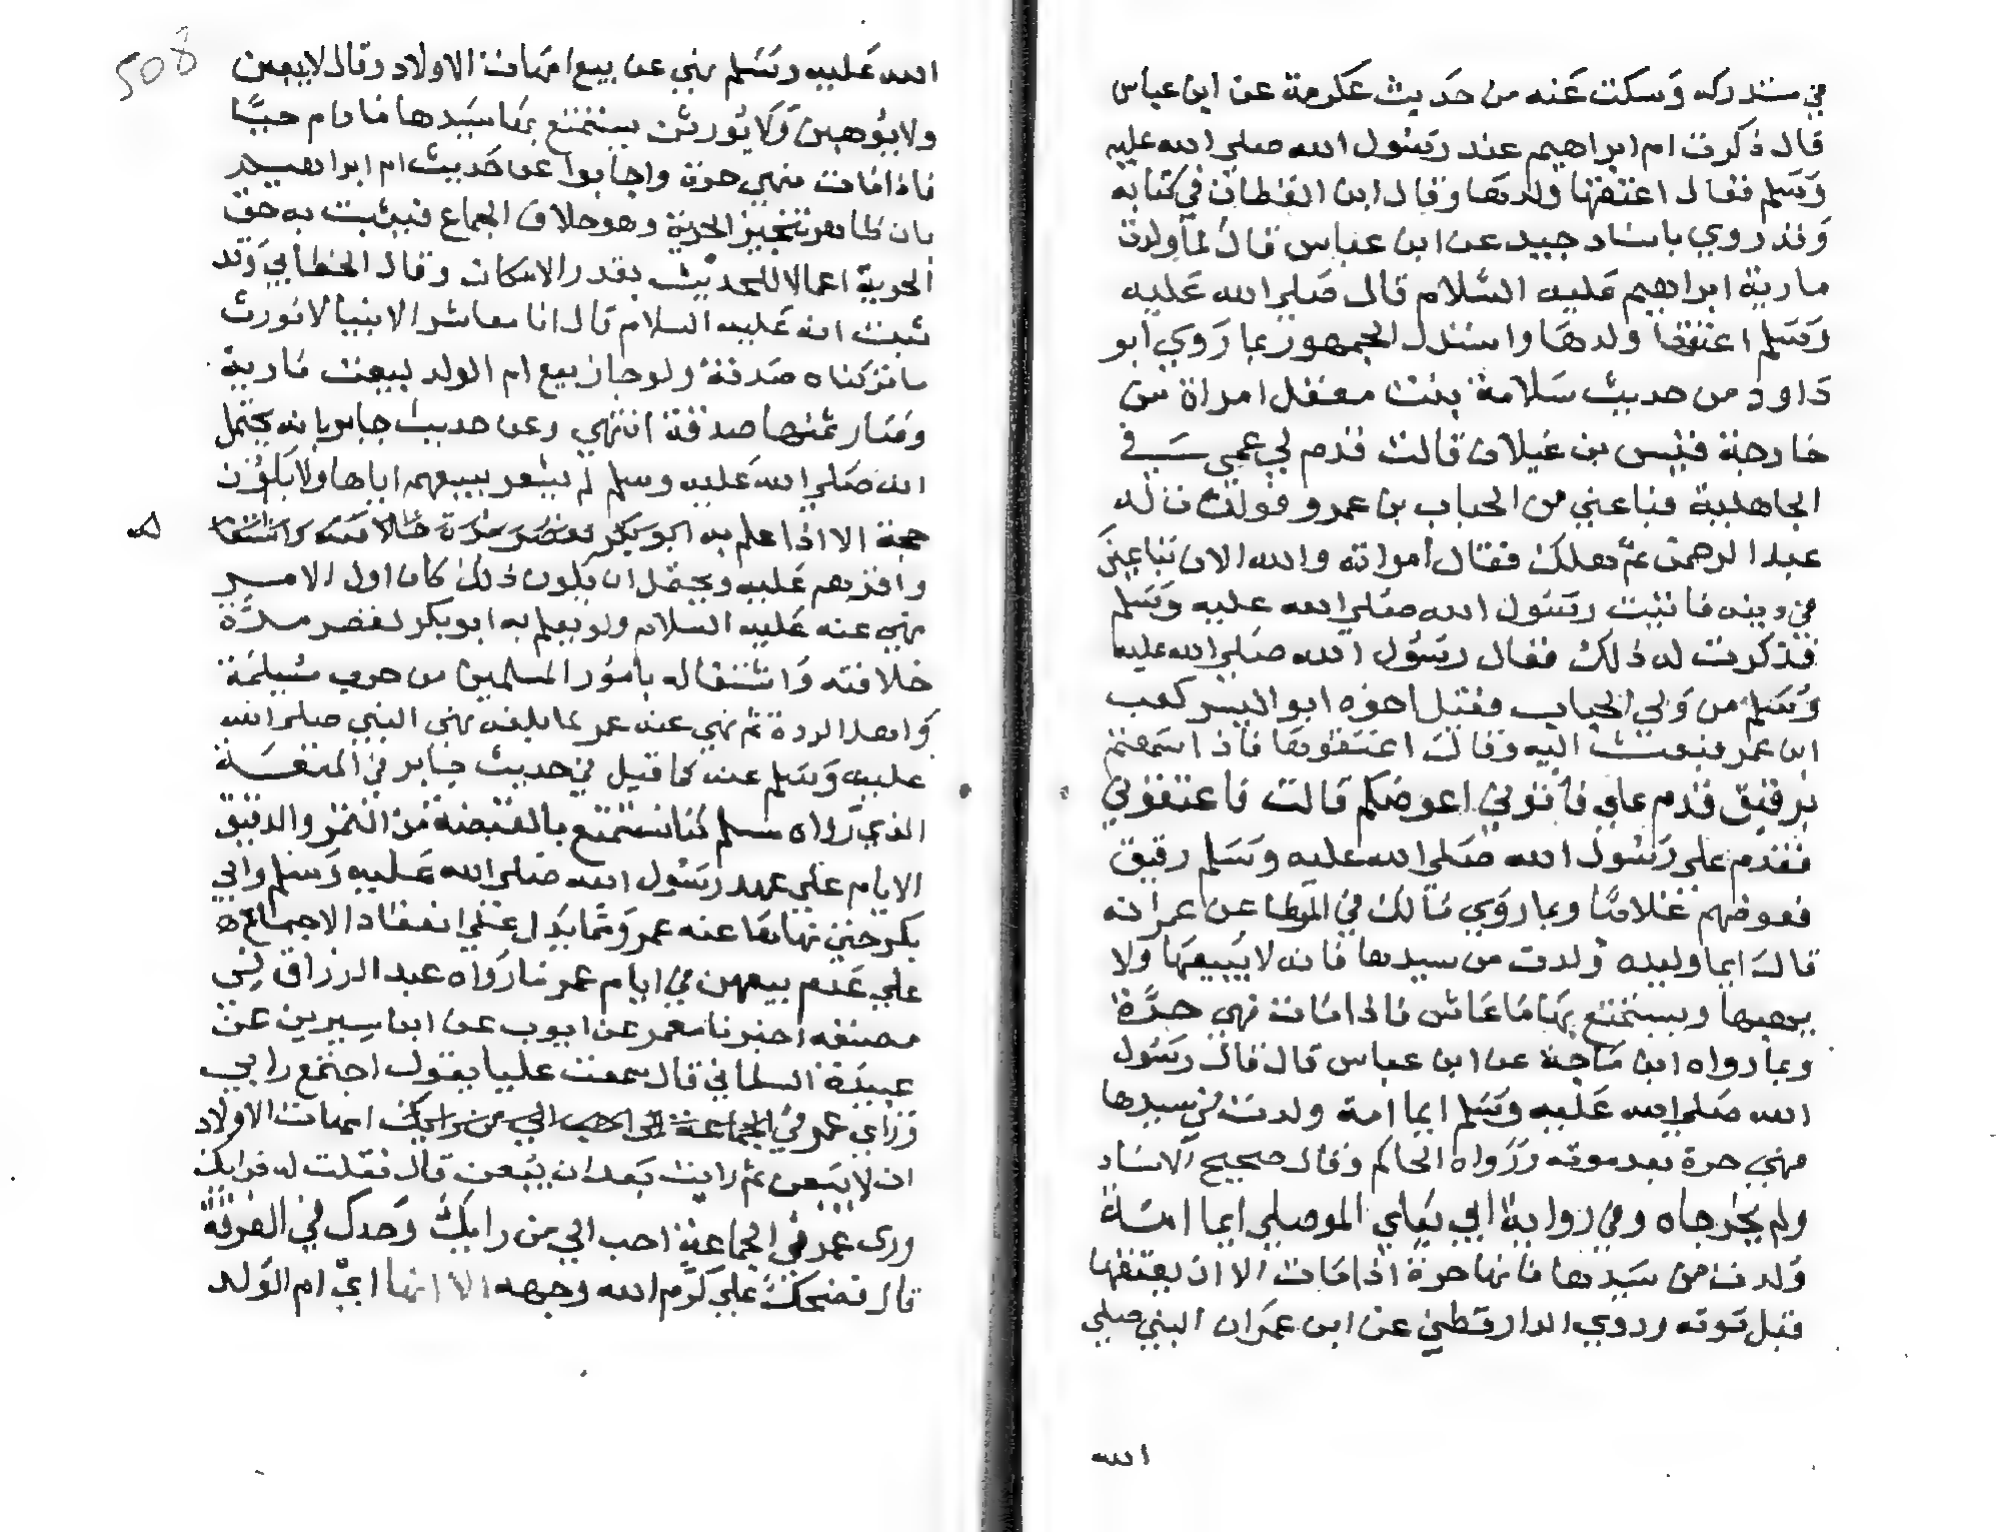 في مستدركه وسكت عنه من حديث عكرمة عن ابن عباس
قال ذكرت ام ابراهيم عند رسول الله صلى الله عليه
وسلم فقال اعتقها ولدها وقال ابن القطان في كتابه
وقد روي باسناد جيد عن ابن عباس قال لما ولدت
مارية ابراهيم عليه السلام قال صلى الله عليه
وسلم اعتقها ولدها واستدل الجمهور بما روي ابو
داود من حديث سلامة بنت معقل امراة من
خارجة قيس بن غيلان قالت قدم بي عمي في
الجاهلية فباعني من الحباب بن عمرو فولدت له
عبد الرحمن ثم هلك فقال امراته والله الان تباعين
في دينه فاتيت رسول الله صلى الله عليه وسلم
فذكرت له ذلك فقال رسول الله صلى الله عليه
وسلم من ولي الحباب فقيل اخوه ابو اليسر كعب
ابن عمر فبعث اليه وقال اعتقوها فاذا سمعتم
برقيق قدم علي فأتوني اعوضكم قالت فاعتقوني
فقدم على رسول الله صلى الله عليه وسلم رقيق
فعوضهم غلاما وبما روي مالك في الموطا عن عمر انه
قال ايما وليده ولدت من سيدها فانه لا يبيعها ولا
يهبها ويستمتع بها ما عاش فاذا مات فهي حرة
وبما رواه ابن ماجة عن ابن عباس قال قال رسول
الله صلى الله عليه وسلم ايما امة ولدت من سيدها
فهي حرة بعد موته ورواه الحاكم وقال صحيح الاسناد
ولم يخرجاه وفي رواية ابي يعلي الموصلي ايما امة
ولدت من سيدها فانها حرة اذا مات الا ان يعتقها
قبل موته وروي الدارقطني عن ابن عمر ان النبي صلى
الله
508
الله عليه وسلم نهي عن بيع امهات الاولاد وقال لا يبعن
ولا يوهبن ولا يورثن يستمتع بها سيدها ما دام حيا
فاذا مات فهي حرة واجابوا عن حديث ام ابراهيم
بان ظاهره تنجيز الحرية وهو خلاف الاجماع فيثبت به حق
الحرية اعمالا للحديث بقدر الامكان وقال الخطابي وقد
ثبت انه عليه السلام قال انا معاشر الانبيا لا نورث
ما تركناه صدقة ولو جاز بيع ام الولد لبيعت مارية
وصار ثمنها صدقة انتهي وعن حديث جابر بانه يحتمل
انه صلى الله عليه وسلم لم يشعر ببيعهم اياها ولا يكون
حجة الا اذا علم به ابو بكر لقصر مدة خلافته واشتغا
واقرهم عليه ويحتمل ان يكون ذلك كان اول الامر
نهي عنه عليه السلام ولم يعلم به ابو بكر لقصر مدة
خلافته واشتغاله بامور المسلمين من حرب مسيلمة
واهل الردة ثم نهي عنه عمر لما بلغه نهي النبي صلى الله
عليه وسلم عنه كما قيل في حديث جابر في المتعة
الذي رواه مسلم كنا نستمتع بالقبضة من التمر والدقيق
الايام على عهد رسول الله صلى الله عليه وسلم وابي
بكر حتي نهانا عنه عمر ومما يدل على انعقاد الاجماع
علي عدم بيعهن في ايام عمر ما رواه عبد الرزاق في
مصنفه اخبرنا معمر عن ايوب عن ابن سيرين عن
عبيدة السلماني قال سمعت عليا يقول اجتمع رايي
وراي عمر في الجماعة الى احب الي من رايك امهات الاولاد
ان لا يبعن ثم رايت بعد ان يبعن قال فقلت له فرايك
وراى عمر في الجماعة احب الي من رايك وحدك في الفرقة
قال فضحك علي كرم الله وجهه الا انها اي ام الولد